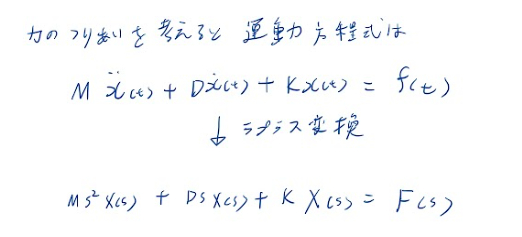 力のつりあいを考えると 運動方程式は
Mẍ(t) + Dẋ(t) + Kx(t) = f(t)
↓ ラプラス変換
Ms²X(s) + DsX(s) + KX(s) = F(s)